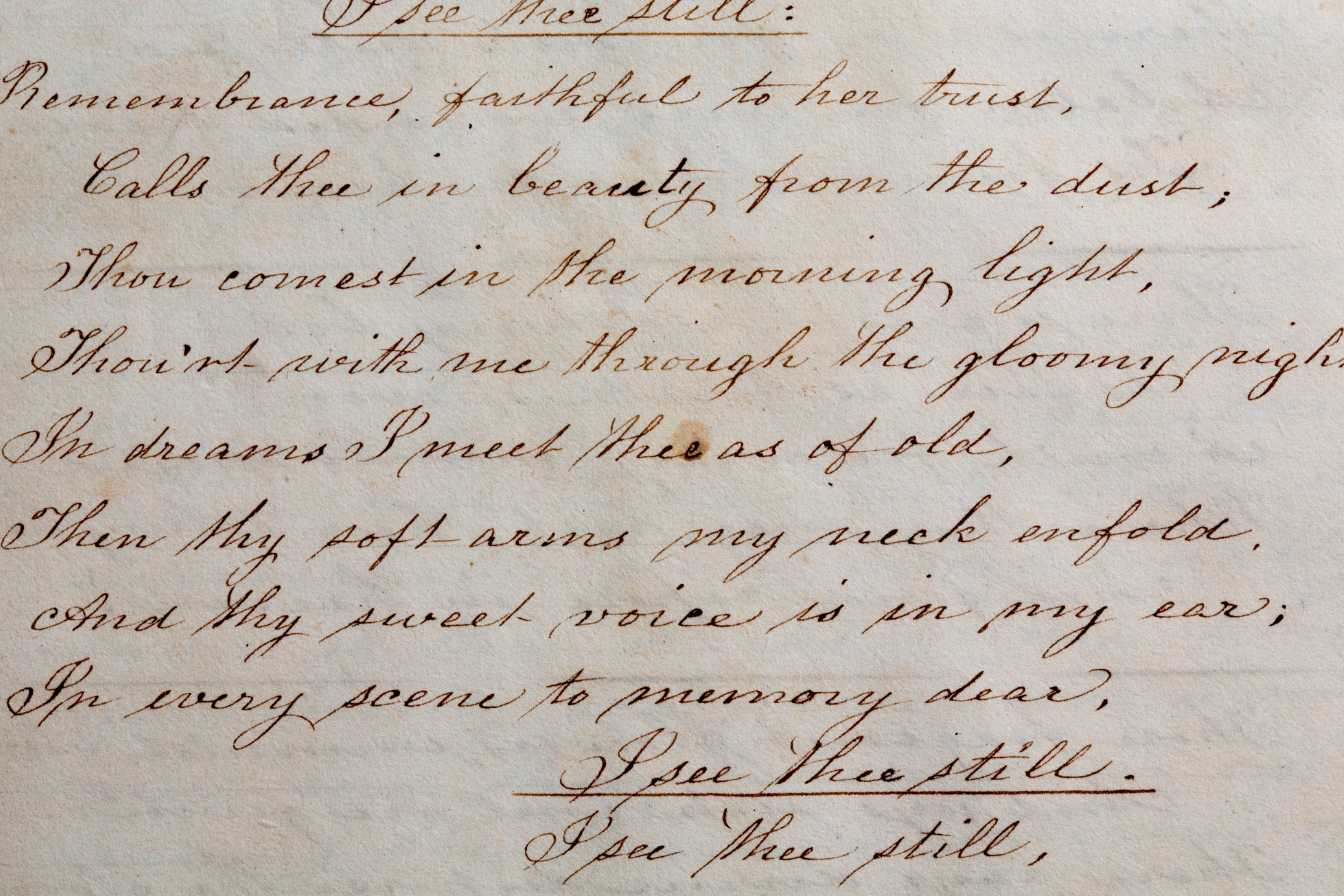 I see thee still:
Remembrance, faithful to her trust,
Calls thee in beauty from the dust;
Thou comest in the morning light,
Thou'rt with me through the gloomy night
In dreams I meet thee as of old,
Then thy soft arms my neck enfold,
And thy sweet voice is in my ear;
In every scene to memory dear,
I see thee still.
I see thee still,